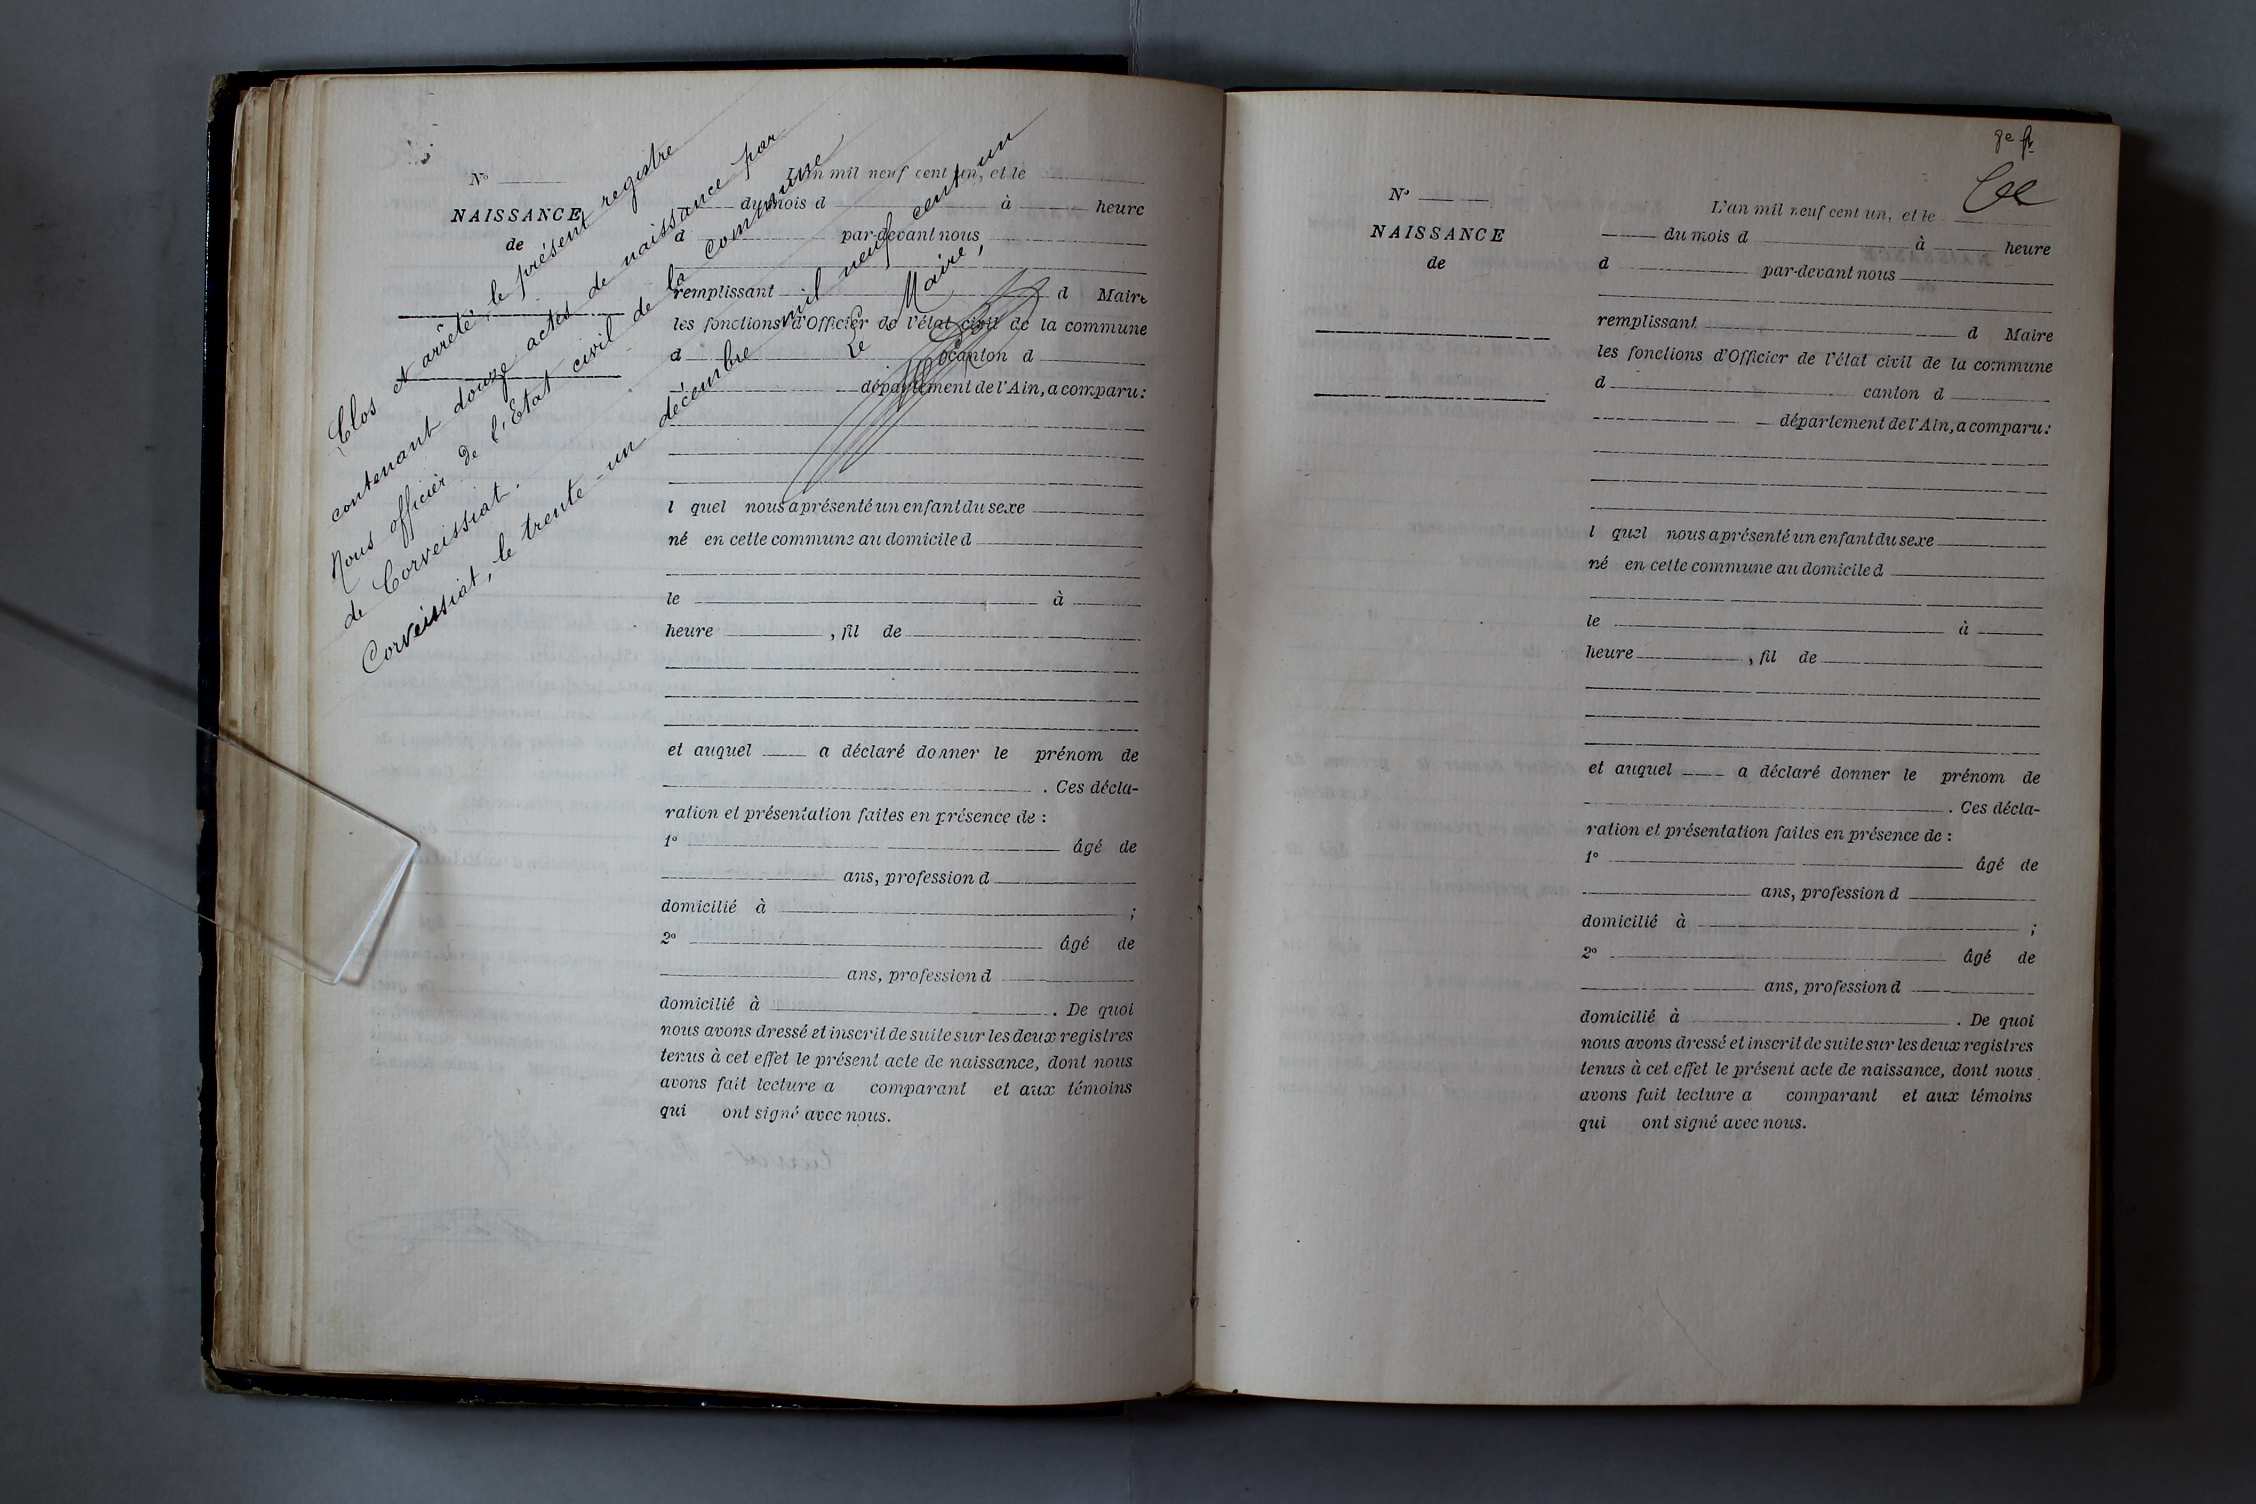 Clos et arrêté le présent registre
contenant douze actes de naissance par
Nous officier de l'État civil de la commune
de Corveissiat.
Corveissiat, le trente-un décembre mil neuf cent un
Le Maire,
N°
NAISSANCE
de
L'an mil neuf cent un, et le
du mois d à heure
d par-devant nous
remplissant d Maire
les fonctions d'Officier de l'état civil de la commune
d canton d
département de l'Ain, a comparu :
l quel nous a présenté un enfant du sexe
né en cette commune au domicile d
le à
heure , fil de
et auquel a déclaré donner le prénom de
. Ces décla-
ration et présentation faites en présence de :
1° âgé de
ans, profession d
domicilié à ;
2° âgé de
ans, profession d
domicilié à . De quoi
nous avons dressé et inscrit de suite sur les deux registres
tenus à cet effet le présent acte de naissance, dont nous
avons fait lecture a comparant et aux témoins
qui ont signé avec nous.
N°
NAISSANCE
de
L'an mil neuf cent un, et le
du mois d à heure
d par-devant nous
remplissant d Maire
les fonctions d'Officier de l'état civil de la commune
d canton d
département de l'Ain, a comparu :
l quel nous a présenté un enfant du sexe
né en cette commune au domicile d
le à
heure , fil de
et auquel a déclaré donner le prénom de
. Ces décla-
ration et présentation faites en présence de :
1° âgé de
ans, profession d
domicilié à ;
2° âgé de
ans, profession d
domicilié à . De quoi
nous avons dressé et inscrit de suite sur les deux registres
tenus à cet effet le présent acte de naissance, dont nous
avons fait lecture a comparant et aux témoins
qui ont signé avec nous.